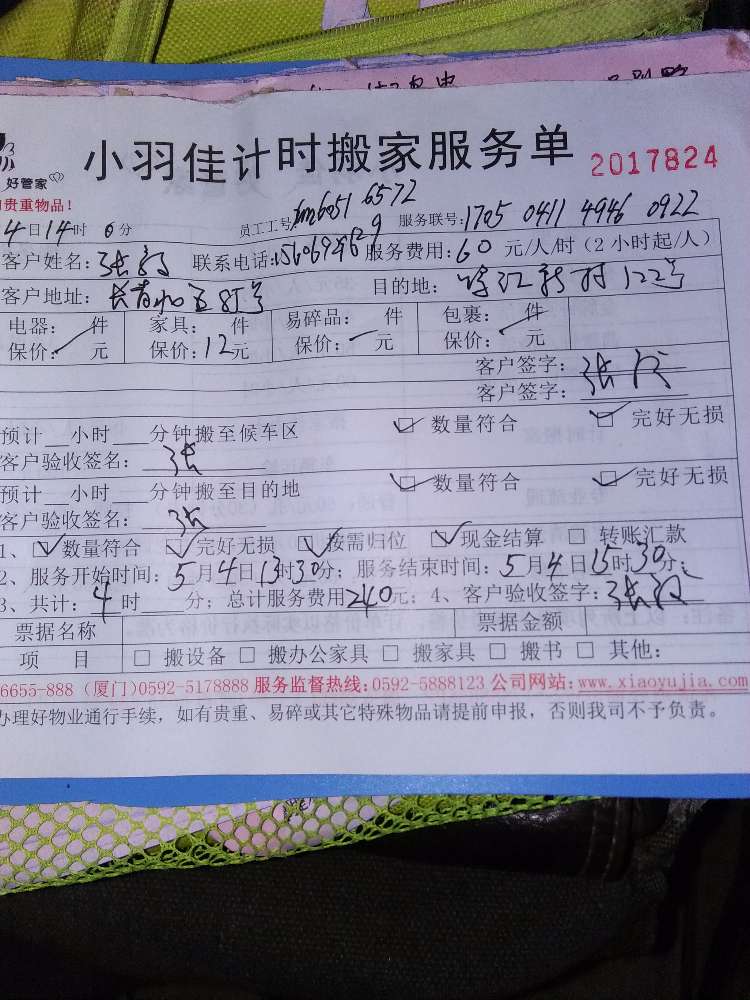 小羽佳计时搬家服务单 2017824
好管家
贵重物品!
4日14时 0分 员工工号: 6051 6572 服务联号:1705 0411 4946 0922
客户姓名:张 联系电话: 服务费用:60 元/人/时(2小时起/人)
客户地址: 目的地: 新村122号
电器: 件 家具: 件 易碎品: 件 包裹: 件
保价: 元 保价:12元 保价: 元 保价: 元
客户签字:张
客户签字:
预计 小时 分钟搬至候车区 数量符合 完好无损
客户验收签名:张
预计 小时 分钟搬至目的地 数量符合 完好无损
客户验收签名:张
1、 数量符合 完好无损 按需归位 现金结算 转账汇款
2、服务开始时间:5月4日13时30分;服务结束时间:5月4日15时30分;
3、共计:4时 分;总计服务费用240元;4、客户验收签字:张
票据名称 票据金额
项 目 搬设备 搬办公家具 搬家具 搬书 其他:
6655-888 (厦门)0592-5178888 服务监督热线:0592-5888123 公司网站:www.xiaoyujia.com
办理好物业通行手续,如有贵重、易碎或其它特殊物品请提前申报,否则我司不予负责。